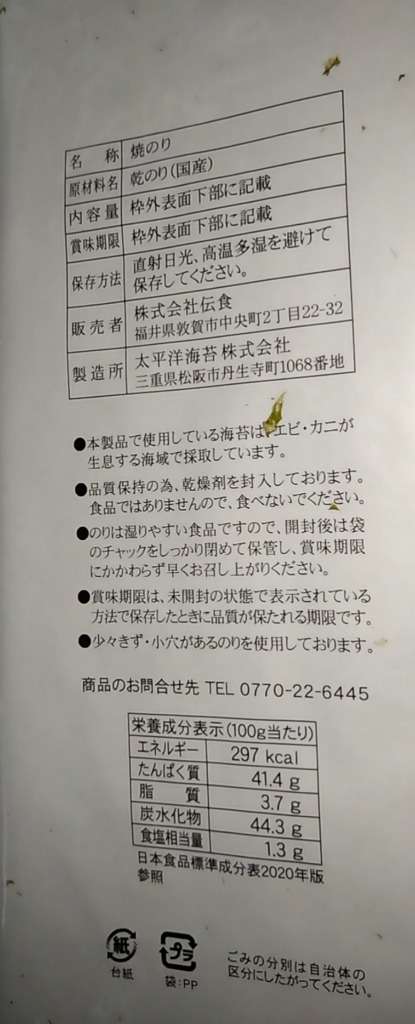 名称 焼のり
原材料名 乾のり(国産)
内容量 枠外表面下部に記載
賞味期限 枠外表面下部に記載
保存方法 直射日光、高温多湿を避けて
保存してください。
販売者 株式会社伝食
福井県敦賀市中央町2丁目22-32
製造所 太平洋海苔 株式会社
三重県松阪市丹生寺町1068番地
●本製品で使用している海苔は、エビ・カニが
生息する海域で採取しています。
●品質保持の為、乾燥剤を封入しております。
食品ではありませんので、食べないでください。
●のりは湿りやすい食品ですので、開封後は袋
のチャックをしっかり閉めて保管し、賞味期限
にかかわらず早くお召し上がりください。
●賞味期限は、未開封の状態で表示されている
方法で保存したときに品質が保たれる期限です。
●少々きず・小穴があるのりを使用しております。
商品のお問合せ先 TEL 0770-22-6445
栄養成分表示(100g当たり)
エネルギー 297 kcal
たんぱく質 41.4 g
脂質 3.7 g
炭水化物 44.3 g
食塩相当量 1.3 g
日本食品標準成分表2020年版
参照
紙
台紙
プラ
袋:PP
ごみの分別は自治体の
区分にしたがってください。